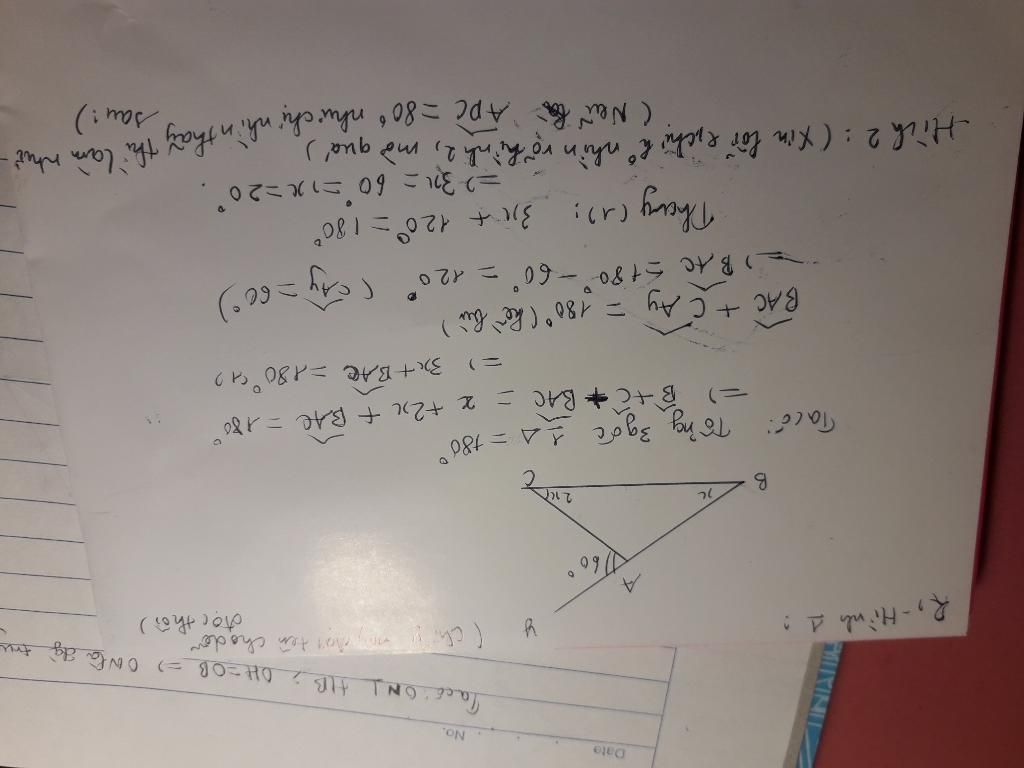 Date
No.
Ta có: ON ⊥ HB; OH = OB => ON là đg tru
R, - Hình 1:
(chị
đọc thôi)
y
A
60°
x
2x
B
C
Ta có: Tổng 3 góc 1 Δ = 180°
=> B + C + BAC = x + 2x + BAC = 180°
=> 3x + BAC = 180° (1)
BAC + CAy = 180° (kề bù)
=> BAC = 180° - 60° = 120° (CAy = 60°)
Thay (1): 3x + 120° = 180°
=> 3x = 60° => x = 20°.
Hình 2: (Xin lỗi e, chị k° nhìn rõ hình 2, mờ quá)
(Nếu ADC = 80° như chị nhìn thấy thì làm như
sau:)